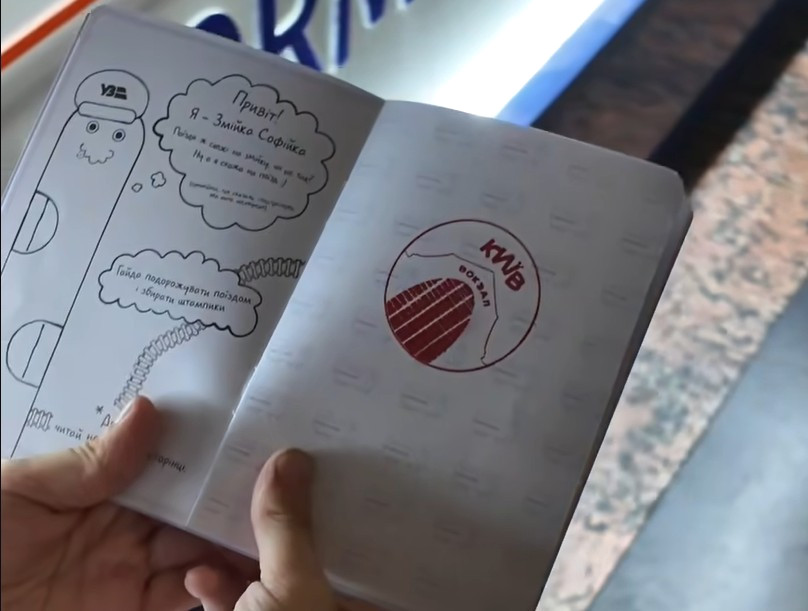 ORM
УЗ
Привіт!
Я – Змійка Софійка
Поїзд ж схожі на змійку, чи не так?
Ну а я схожа на поїзд!
Гайда подорожувати поїздом
і збирати штампики
* Д
читай н
орінці
КИЇВ
ВОКЗАЛ